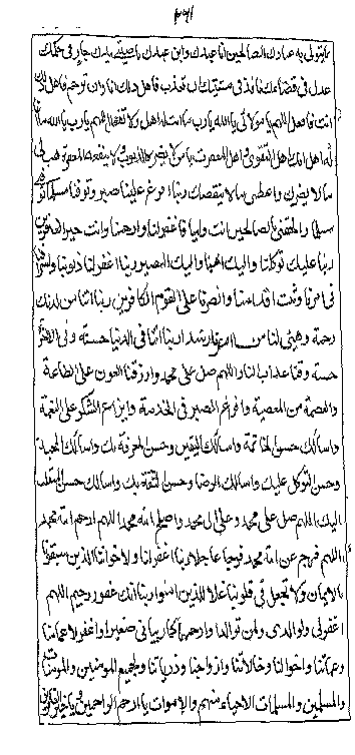 ٢٦١
ما يتولى به عبادك الصالحين انا عبدك وابن عبدك ناصيتي بيدك جار في حكمك
عدل في قضاءك نافذ في مشيتك ان تعذب فاهل ذلك انا وان ترحم فاهل ذلك
انت فافعل اللهم يا مولائي يا الله يا رب ما انت له اهل ولا تفعل اللهم يا رب يا الله ما انا
له اهل انك اهل التقوى واهل المغفرة يا من لا يضره الذنوب ولا ينقصه المغفرة هب لي
ما لا يضرك واعطني ما لا ينقصك ربنا افرغ علينا صبرا وتوفنا مسلمين توفني
مسلما والحقني بالصالحين انت ولينا فاغفر لنا وارحمنا وانت خير الغافرين
ربنا عليك توكلنا واليك انبنا واليك المصير ربنا اغفر لنا ذنوبنا واسرافنا
في امرنا وثبت اقدامنا وانصرنا على القوم الكافرين ربنا اتنا من لدنك
رحمة وهيئ لنا من امرنا رشدا ربنا اتنا في الدنيا حسنة وفي الاخرة
حسنة وقنا عذاب النار اللهم صل على محمد وارزقنا العون على الطاعة
والعصمة من المعصية وافرغ الصبر في الخدمة وايزاع الشكر على النعمة
واسألك حسن الخاتمة واسألك اليقين وحسن المعرفة بك واسألك المحبة
وحسن التوكل عليك واسألك الرضا وحسن الثقة بك واسألك حسن المنقلب
اليك اللهم صل على محمد وعلى ال محمد واصلح امة محمد اللهم ارحم امة محمد
اللهم فرج عن امة محمد فرجا عاجلا ربنا اغفر لنا ولاخواننا الذين سبقونا
بالايمان ولا تجعل في قلوبنا غلا للذين امنوا ربنا انك غفور رحيم اللهم
اغفر لي ولوالدي ولمن توالدا وارحمهما كما ربياني صغيرا واغفر لاعمامنا
وعماتنا واخوالنا وخالاتنا وازواجنا وذرياتنا ولجميع المؤمنين والمؤمنات
والمسلمين والمسلمات الاحياء منهم والاموات يا ارحم الراحمين ويا خير الغافرين